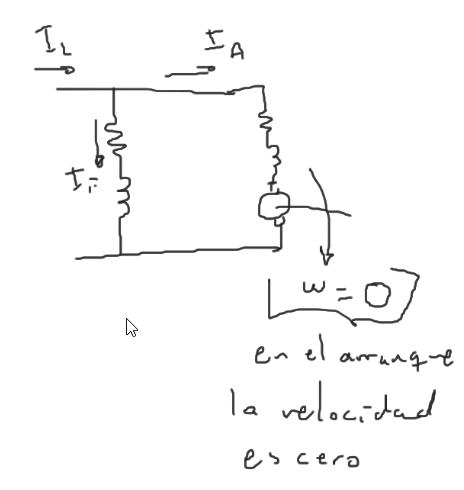 I_L
I_A
I_F
w = 0
en el arranque
la velocidad
es cero